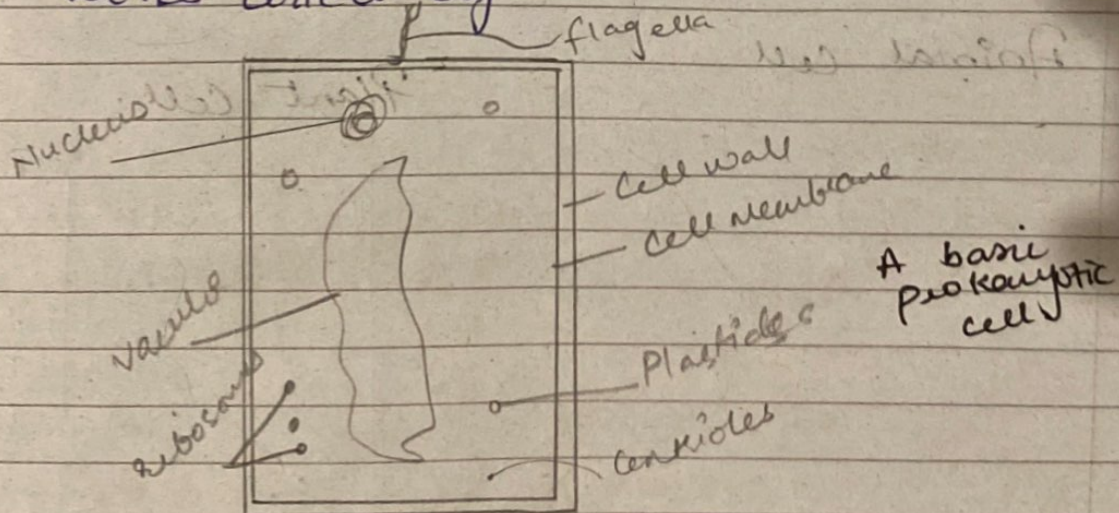 flagella
Nucleus
Cell wall
Cell Membrane
A basic
prokaryotic
cell
Vacuole
Plastides
ribosomes
Centrioles